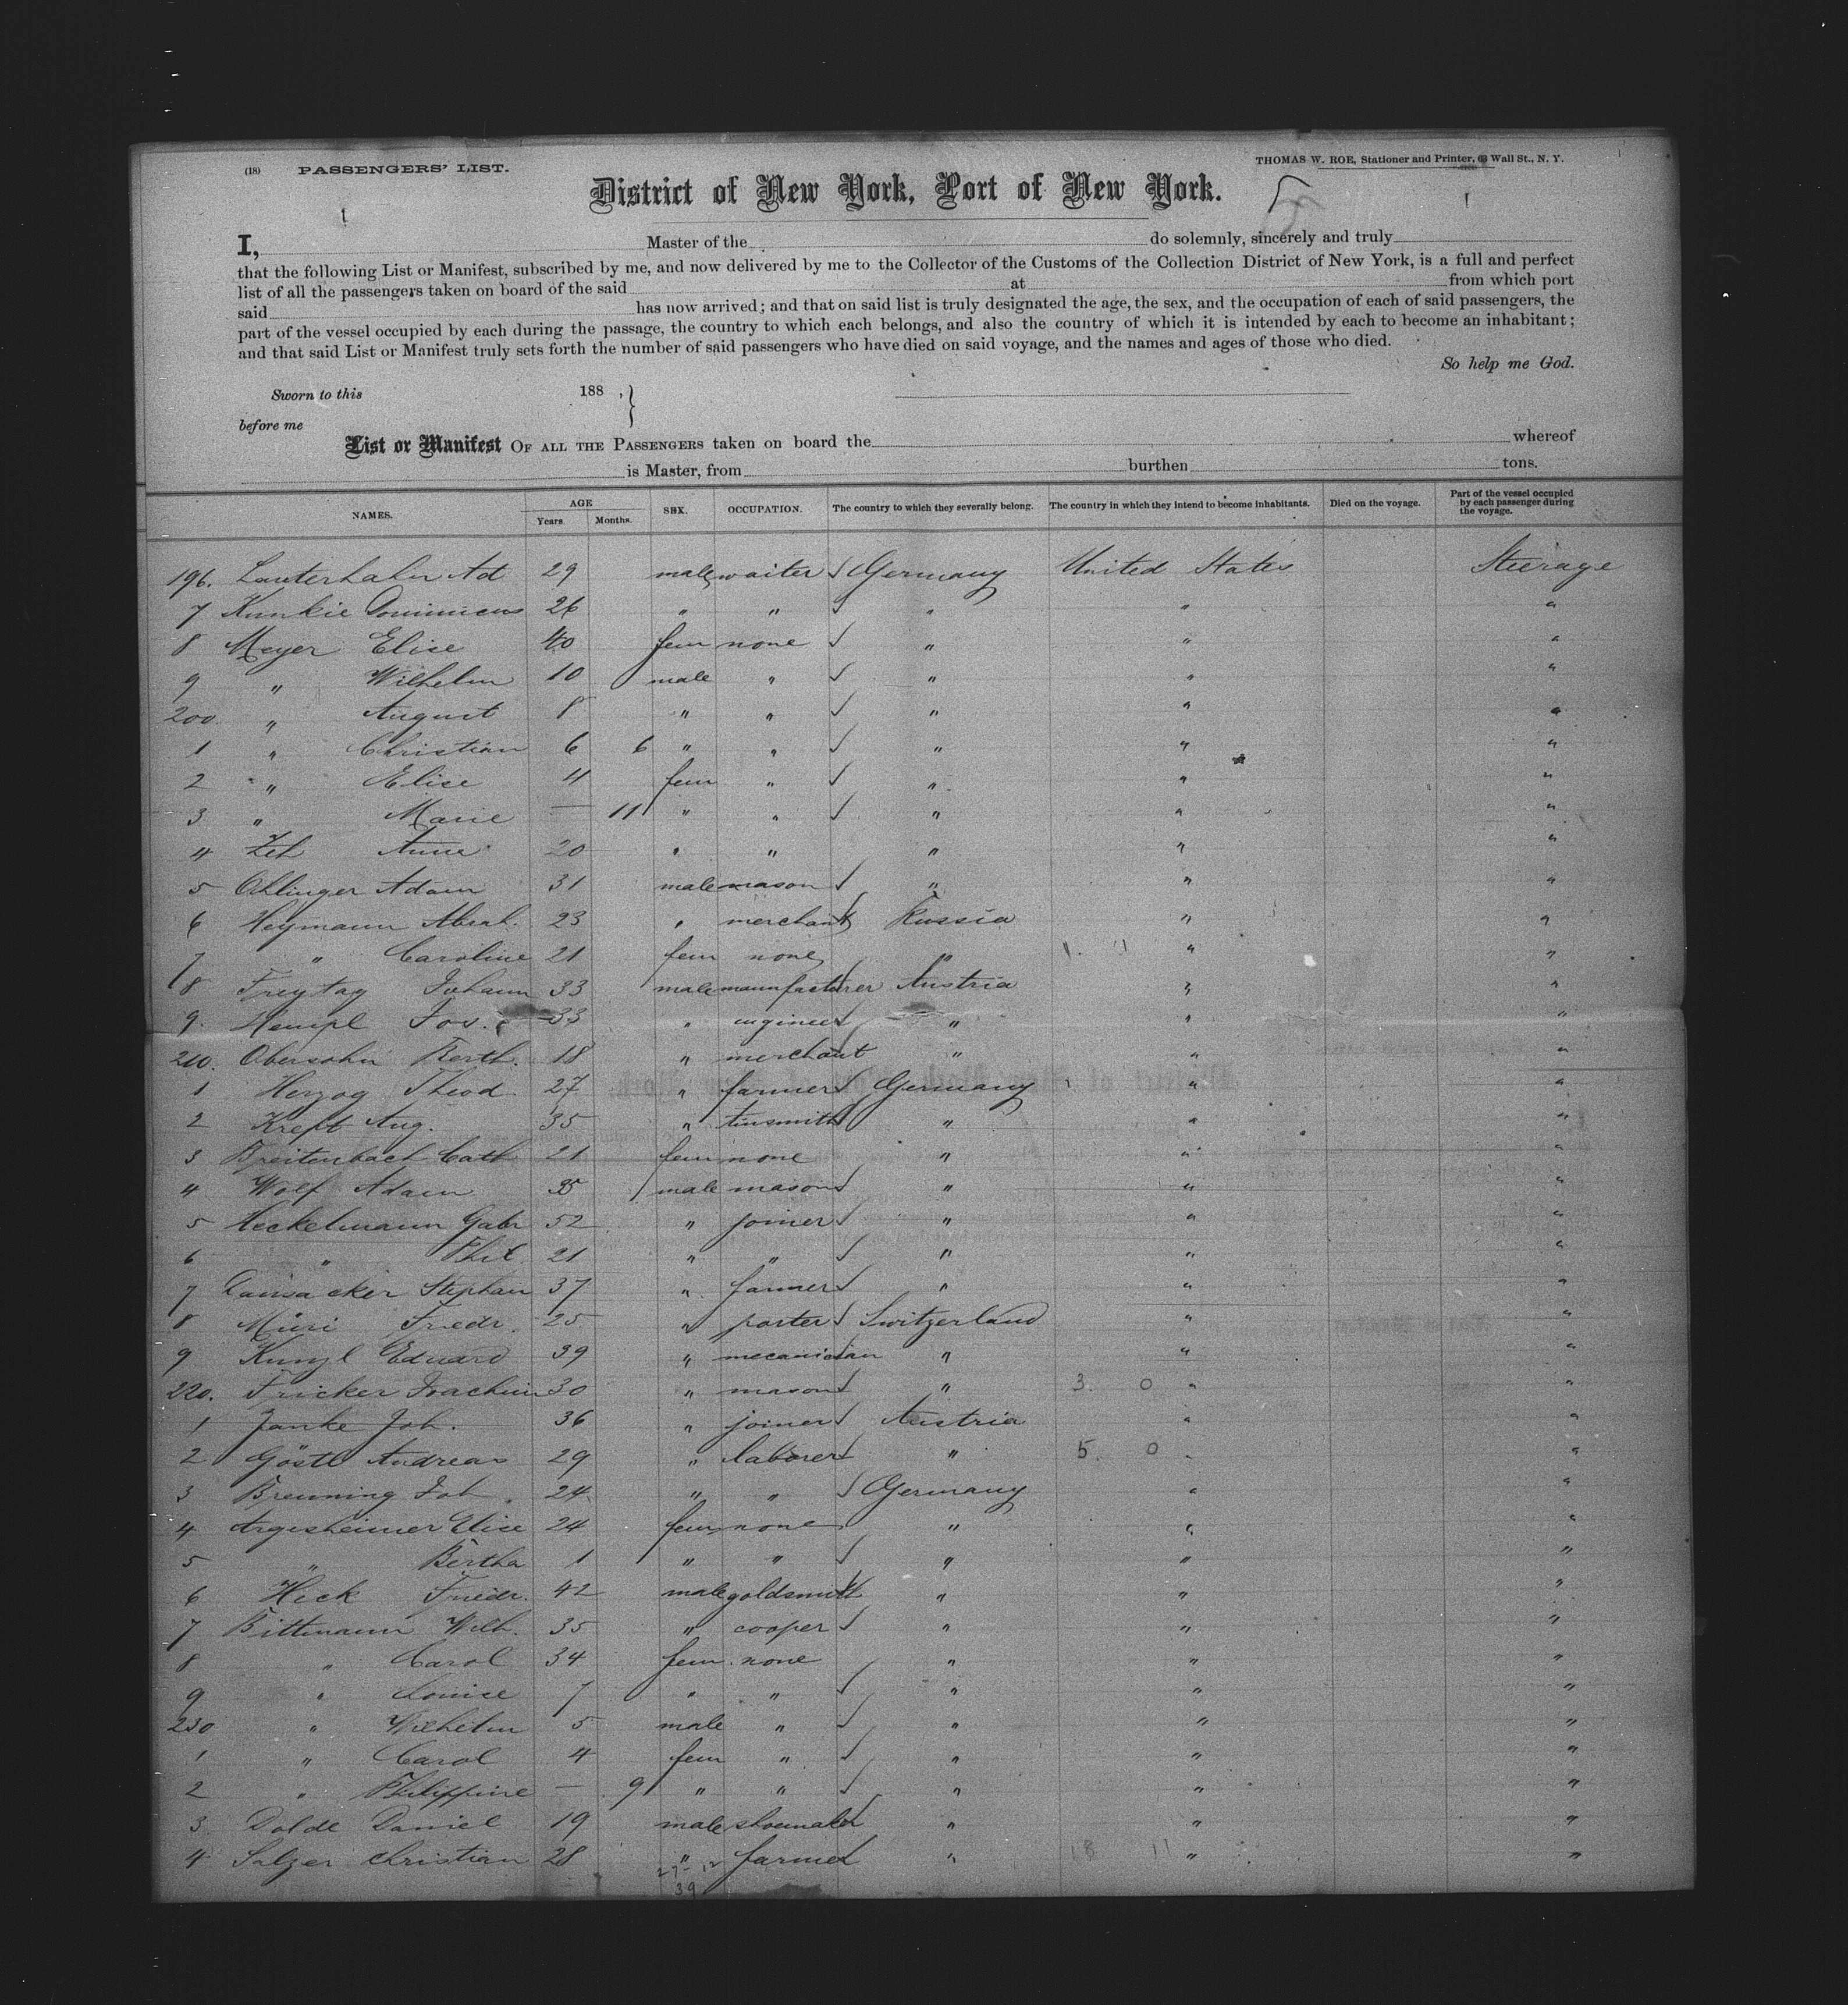 (18) PASSENGERS' LIST.
THOMAS W. ROE, Stationer and Printer, Wall St., N. Y.
District of New York, Port of New York. 5
I, Master of the do solemnly, sincerely and truly
that the following List or Manifest, subscribed by me, and now delivered by me to the Collector of the Customs of the Collection District of New York, is a full and perfect
list of all the passengers taken on board of the said at from which port
said has now arrived; and that on said list is truly designated the age, the sex, and the occupation of each of said passengers, the
part of the vessel occupied by each during the passage, the country to which each belongs, and also the country of which it is intended by each to become an inhabitant;
and that said List or Manifest truly sets forth the number of said passengers who have died on said voyage, and the names and ages of those who died.
So help me God.
Sworn to this 188 ,}
before me
List or Manifest OF ALL THE PASSENGERS taken on board the whereof
is Master, from burthen tons.
NAMES. AGE Years. Months. SEX. OCCUPATION. The country to which they severally belong. The country in which they intend to become inhabitants. Died on the voyage. Part of the vessel occupied by each passenger during the voyage.
196. Lauterhahn Ad 29 male waiter √ Germany United States Steerage
7 Kunkie Dominicus 26 " " √ " " "
8 Meyer Elise 40 fem none √ " " "
9 " Wilhelm 10 male " √ " " "
200 " August 8 " " √ " " "
1 " Christian 6 6 " " √ " " "
2 " Elise 4 fem " √ " " "
3 " Marie — 11 " " √ " " "
4 Zeh Anna 20 " " " " "
5 Ohlinger Adam 31 male mason √ " " "
6 Heymann Abrah. 23 " merchant √ Russia " "
7 " Caroline 21 fem none " 1. 11 " "
8 Freytag Johann 33 male manufacturer √ Austria " "
9. Hempl Jos. 33 " engineer √ " " "
210. Obersohn Berth. 18 " merchant √ " " "
1 Herzog Theod 27 " farmer √ Germany " "
2 Kreft Aug. 35 " tinsmith √ " " "
3 Breitenbach Cath 21 fem none " " "
4 Wolf Adam 35 male mason √ " " "
5 Heckelmann Gabr 52 " joiner √ " " "
6 " Phil 21 " " √ " " "
7 Stephan 37 " farmer √ " " "
8 Müri Friedr. 25 " porter √ Switzerland " "
9 Kunzl Eduard 39 " mecanician √ " " "
220. Fricker Joachim 30 " mason √ " 3. 0 " "
1 Janke Joh. 36 " joiner √ Austria " "
2 Göstl Andreas 29 " laborer √ " 5. 0 " "
3 Breuning Joh. 24 " " √ Germany " "
4 Argesheimer Elise 24 fem none " " "
5 " Bertha 1 " " √ " " "
6 Heck Friedr. 42 male goldsmith √ " " "
7 Bittmann Wilh. 35 " cooper √ " " "
8 " Carol 34 fem. none " " "
9 " Louise 7 " " √ " " "
230 " Wilhelm 5 male " √ " " "
1 " Carol 4 fem " √ " " "
2 " Philippine — 9 " " √ " " "
3 Dolde Daniel 19 male shoemaker √ " " "
4 Salzer Christian 28 " farmer √ " 18 11 " "
27 - 12
39